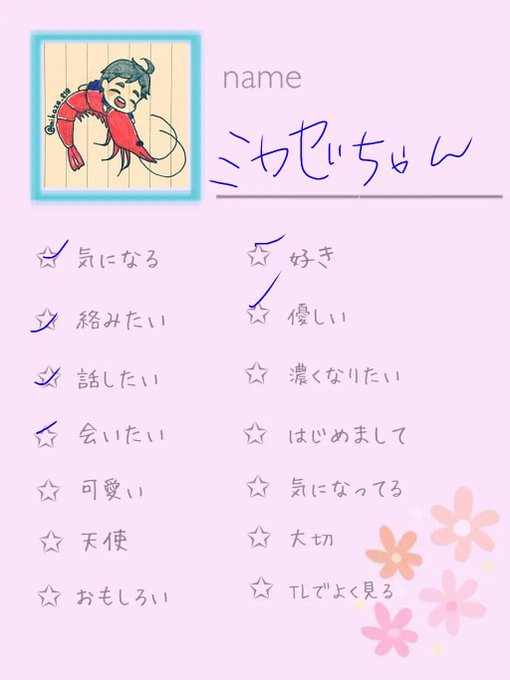 @mikaze_810
name
ミカぜちゃん
気になる
絡みたい
話したい
会いたい
可愛い
天使
おもしろい
好き
優しい
濃くなりたい
はじめまして
気になってる
大切
TLでよく見る